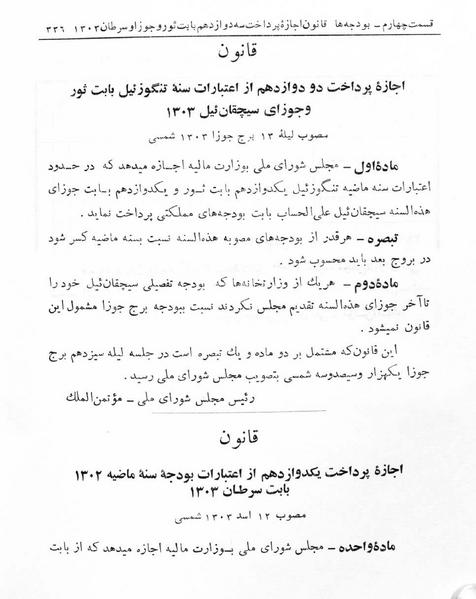 قسمت چهارم – بودجه‌ها قانون اجازهٔ پرداخت سه دوازدهم بابت ثور و جوزا و سرطان ۱۳۰۳ ۳۳۶
قانون
اجازهٔ پرداخت دو دوازدهم از اعتبارات سنهٔ تنگوزئیل بابت ثور
و جوزای سیچقان‌ئیل ۱۳۰۳
مصوب لیلهٔ ۱۳ برج جوزا ۱۳۰۳ شمسی
مادهٔ اول – مجلس شورای ملی بوزارت مالیه اجازه میدهد که در حدود
اعتبارات سنه ماضیه تنگوزئیل یکدوازدهم بابت ثور و یکدوازدهم بابت جوزای
هذه‌السنه سیچقان‌ئیل علی‌الحساب بابت بودجه‌های مملکتی پرداخت نماید .
تبصره – هرقدر از بودجه‌های مصوبه هذه‌السنه نسبت بسنه ماضیه کسر شود
در بروج بعد باید محسوب شود .
مادهٔ دوم – هریك از وزارتخانه‌ها که بودجه تفصیلی سیچقان‌ئیل خود را
تا آخر جوزای هذه‌السنه تقدیم مجلس نکردند نسبت ببودجه برج جوزا مشمول این
قانون نمیشود .
این قانون که مشتمل بر دو ماده و یك تبصره است در جلسه لیله سیزدهم برج
جوزا یکهزار و سیصدوسه شمسی بتصویب مجلس شورای ملی رسید .
رئیس مجلس شورای ملی – مؤتمن‌الملك
قانون
اجازهٔ پرداخت یکدوازدهم از اعتبارات بودجهٔ سنهٔ ماضیه ۱۳۰۲
بابت سرطان ۱۳۰۳
مصوب ۱۲ اسد ۱۳۰۳ شمسی
مادهٔ واحده – مجلس شورای ملی بوزارت مالیه اجازه میدهد که از بابت